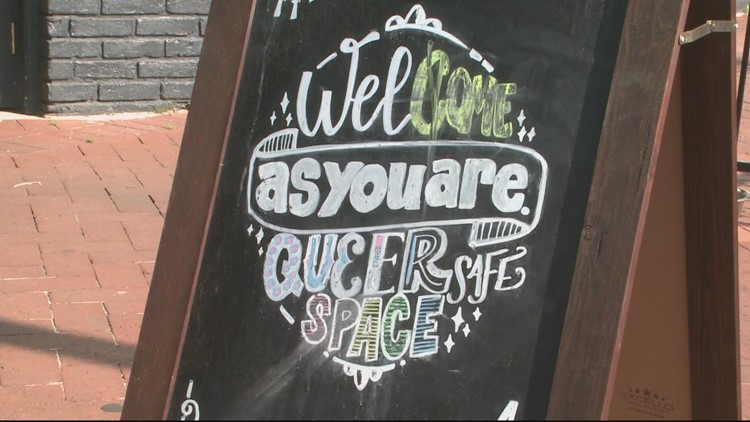 WelCOME
asyouare.
QUEER SAFE
SPACE